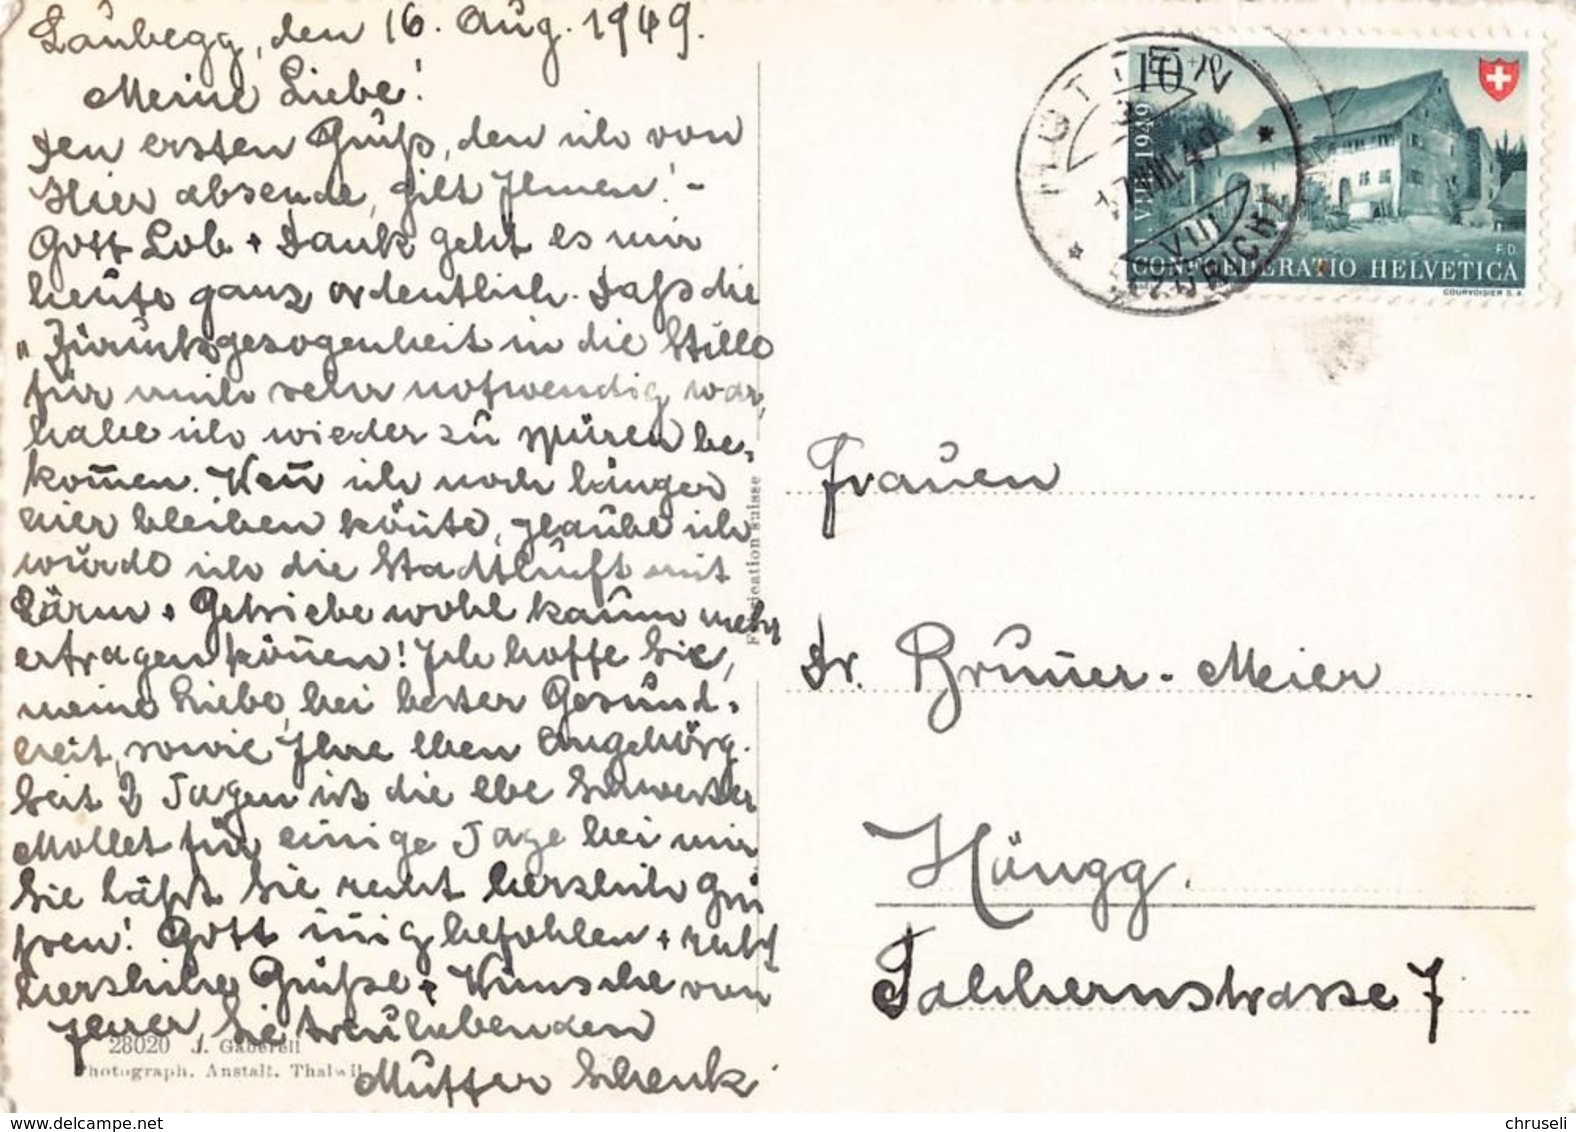 Laubegg, den 16. Aug. 1949.
Meine Liebe!
Den ersten Gruß, den ich von
Hier absende, gilt Ihnen! -
Gott Lob + Dank geht es mir
heute ganz ordentlich. Daß die
"Zurückgezogenheit in die Stille
für mich sehr notwendig war,
habe ich wieder zu spüren be-
kom̅en. Wen̅ ich noch länger
hier bleiben kön̅te, glaube ich
würde ich die Stadtluft mit
Lärm + Getriebe wohl kaum mehr
ertragen kön̅en! Ich hoffe Sie,
meine Liebe, bei bester Gesund-
heit, sowie Ihre lben Angehörg.
Seit 2 Tagen ist die lbe Schwester
Mollet für einige Tage bei mir
Sie läßt Sie recht herzlich Grü
ßen! Gott in̅ig befohlen + recht
herzliche Grüße + Wünsche von
Ihrer, Sie treuliebenden
Mutter Schenk
28020 J. Gaberell
Photograph. Anstalt. Thalwil
suisse
10+10
1. VIII 1949
CONFOEDERATIO HELVETICA
F.D.
COURVOISIER S.A.
(ZÜRICH)
Frauen
Dr. Brun̅er-Meier
Höngg.
Talchernstrasse 7
chruseli